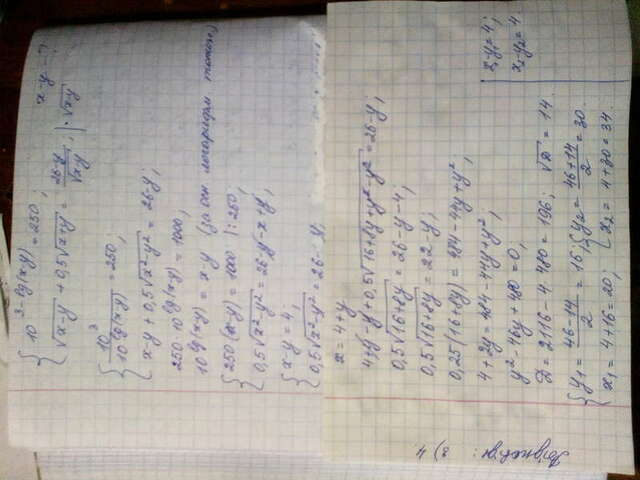 { 10^{3-lg(x-y)} = 250;
√x-y + 0,5√x+y = 26-y/√x-y, | · √x-y x-y - ?
{ 10^3/10^{lg(x-y)} = 250;
x-y + 0,5√x²-y² = 26-y;
250·10^{lg(x-y)} = 1000;
10^{lg(x-y)} = x-y
{ 250(x-y) = 1000 |:250;
0,5√x²-y² = 26-y-x+y;
{ x-y = 4,
0,5√x²-y² = 26-y;
x = 4+y
4+y-y+0,5√16+8y+y²-y² = 26-y;
0,5√16+8y = 26-y-4;
0,5√16+8y = 22-y;
0,25(16+8y) = 484-44y+y²
4+2y = 484-44y+y²;
y²-46y+480=0,
D = 2116-4·480 = 196; √D = 14.
{ y₁ = 46-14/2 = 16; { y₂ = 46+14/2 = 30.
x₁ = 4+16 = 20; x₂ = 4+30 = 34.
x₁-y₁=4;
x₂-y₂=4.